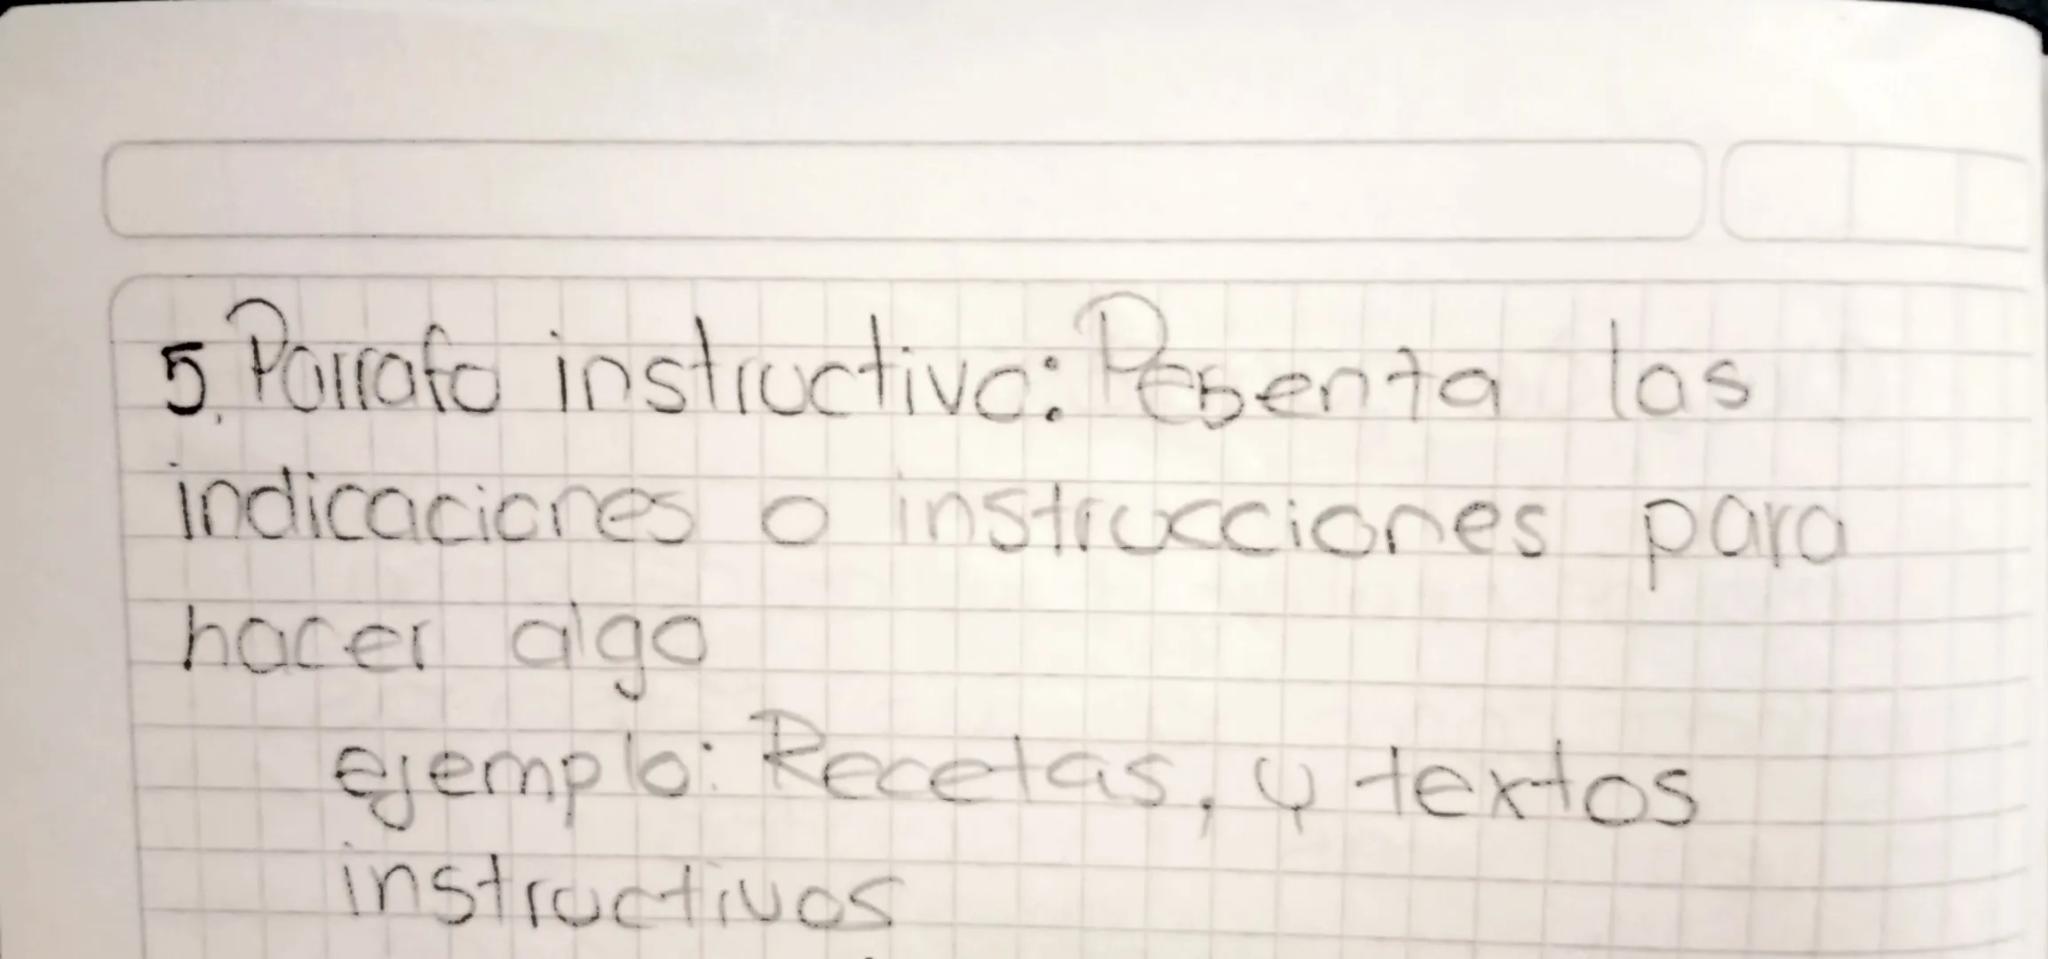 5. Parrafo instructivo: Pesenta las
indicaciones o instrucciones para
hacer algo
ejemplo: Recetas, y textos
instructivos